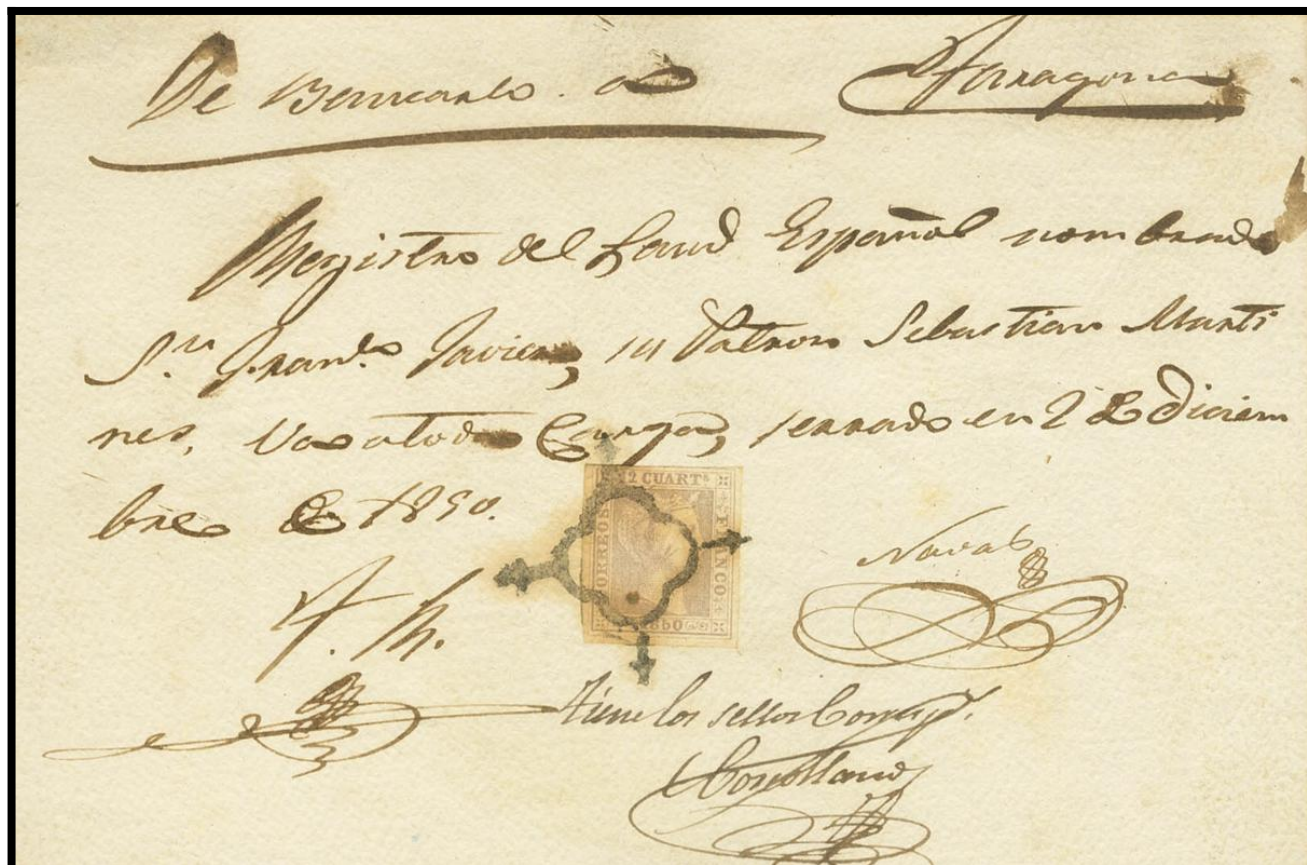 De Benicarlo a Tarragona
Registro del Laud Español nombrado
Sn. Franco. Javier, su Patron Sebastian Marti
nes, Va a toda Carga, serrado en 2 de Diciem
bre de 1850.
12 CUARTS
CORREOS
FRANCO
1850
Naval
Tiene los sellos